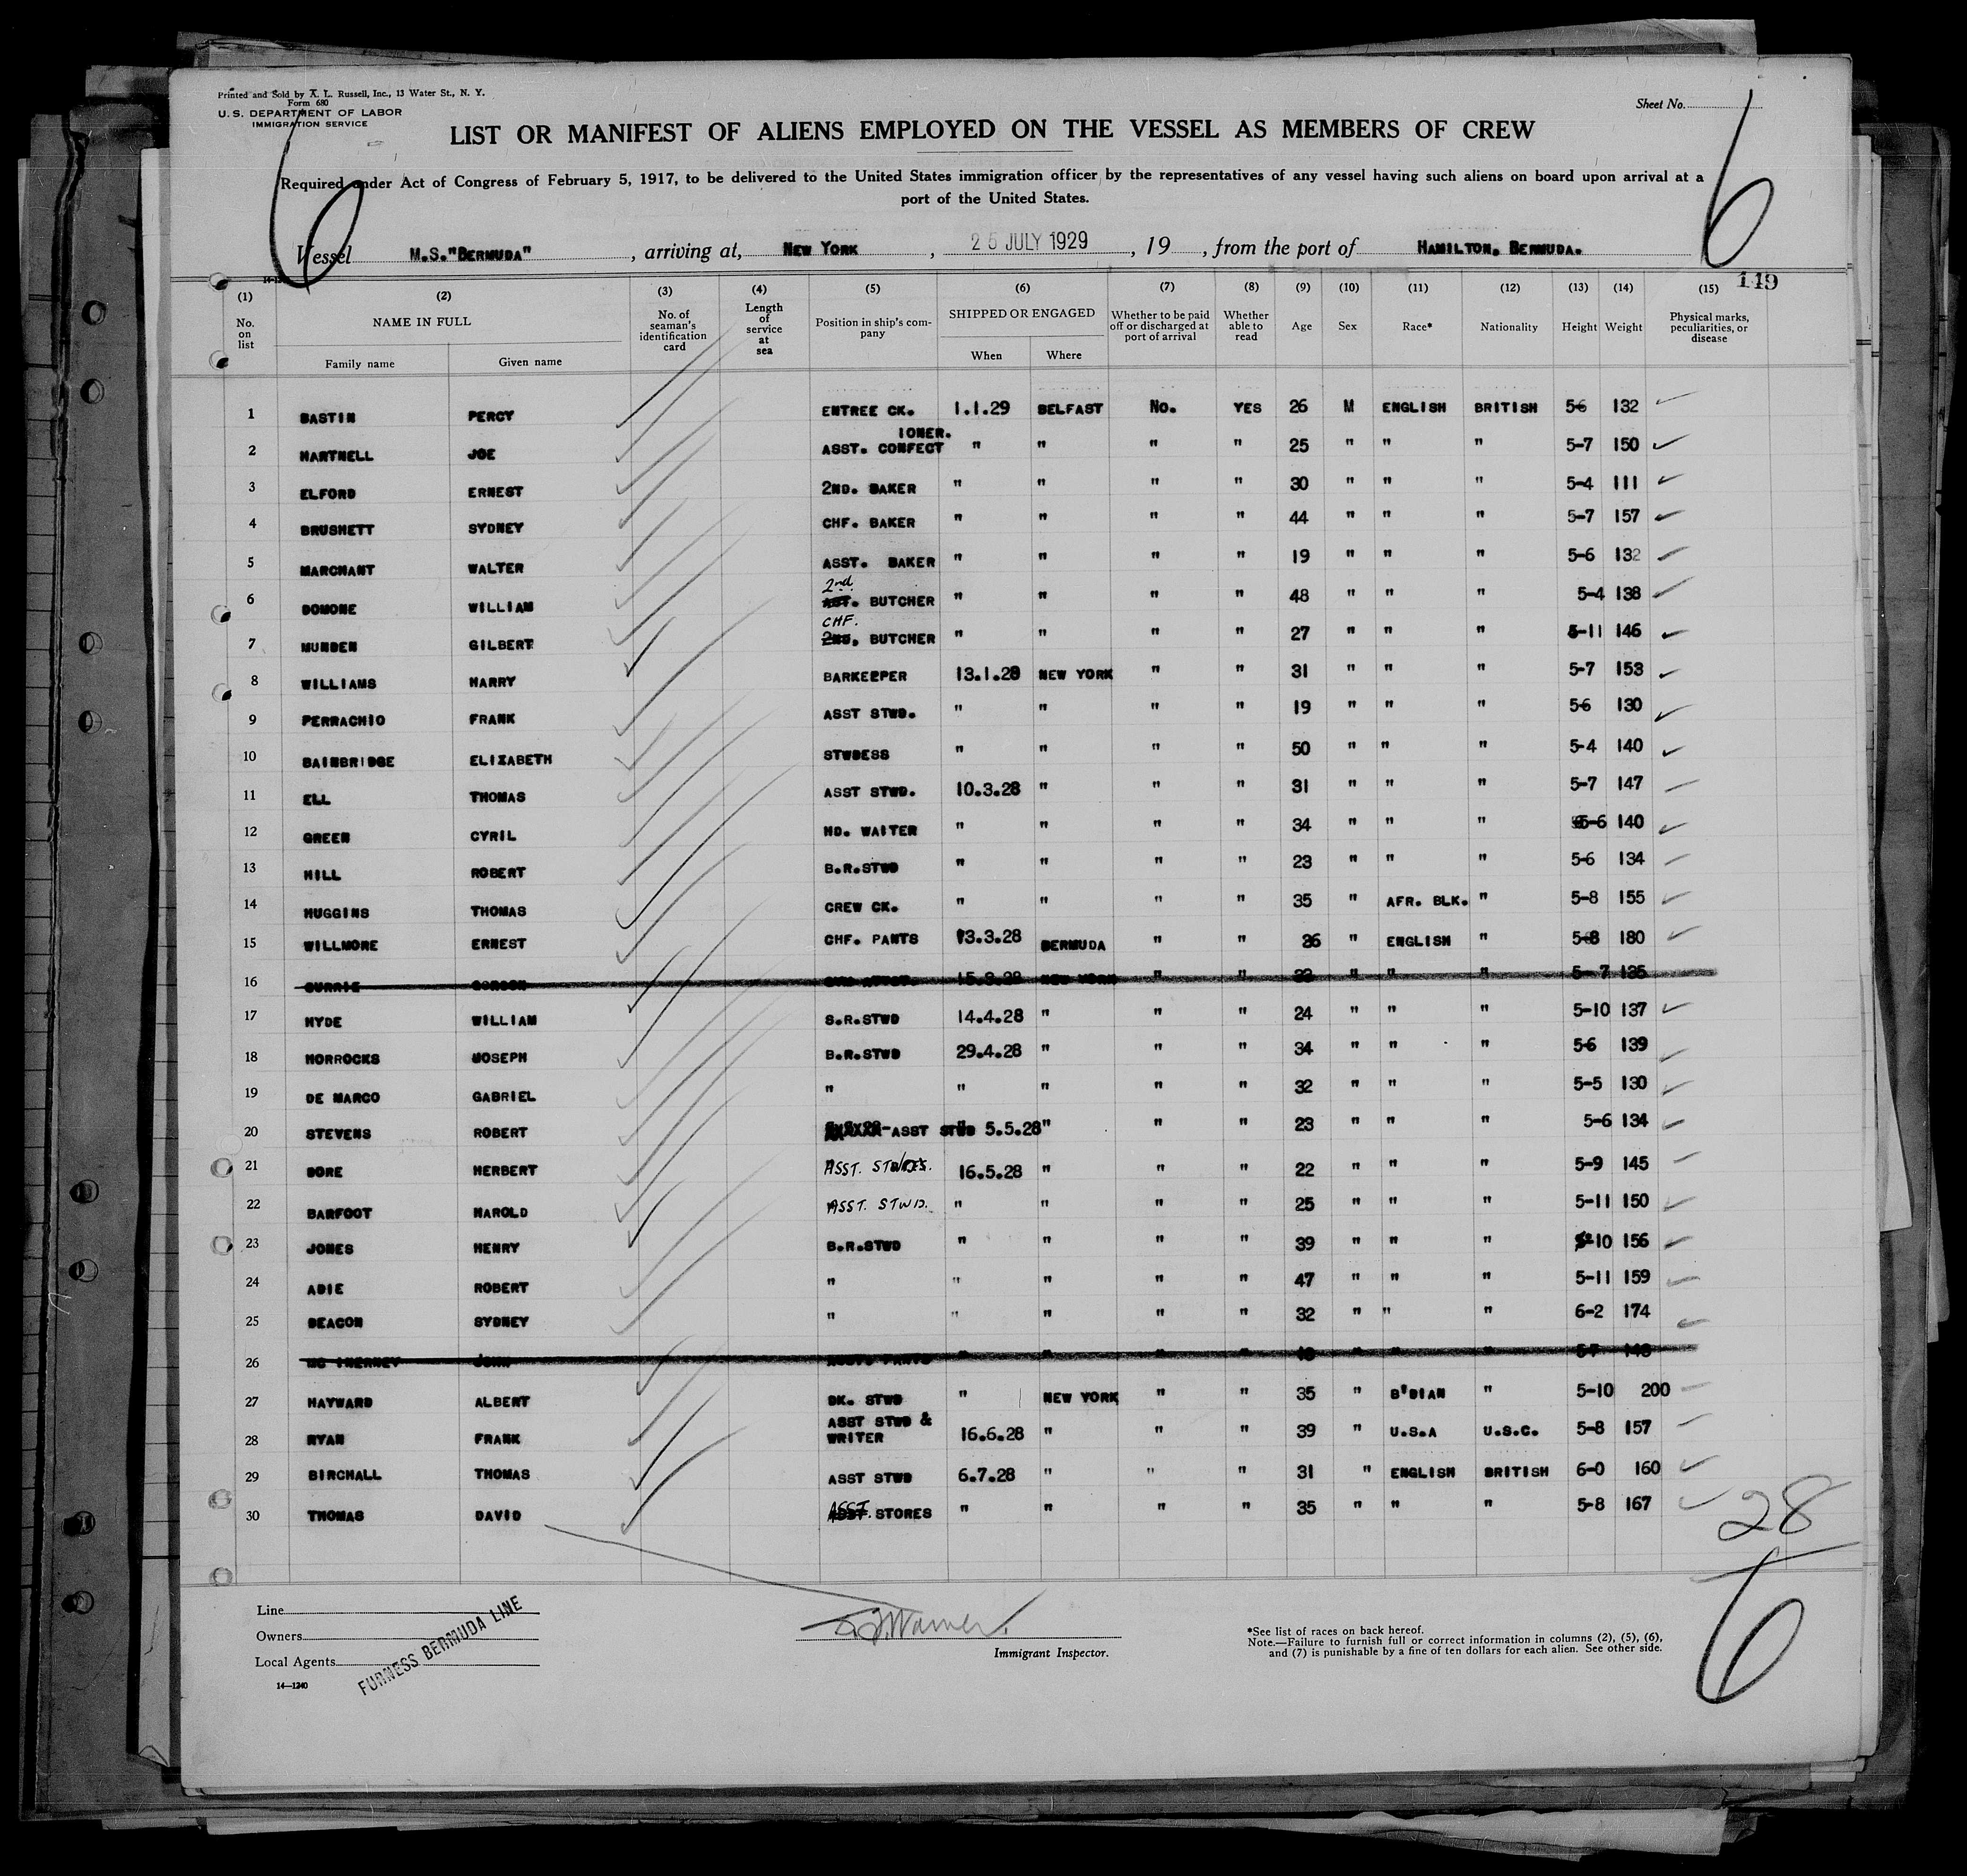 Printed and Sold by A. L. Russell, Inc., 13 Water St., N. Y.
Form 680
U. S. DEPARTMENT OF LABOR
IMMIGRATION SERVICE
Sheet No.
6
6
LIST OR MANIFEST OF ALIENS EMPLOYED ON THE VESSEL AS MEMBERS OF CREW
Required under Act of Congress of February 5, 1917, to be delivered to the United States immigration officer by the representatives of any vessel having such aliens on board upon arrival at a
port of the United States.
Vessel M.S."BERMUDA", arriving at, NEW YORK, 25 JULY 1929, 19, from the port of HAMILTON, BERMUDA.
149
(1) (2) (3) (4) (5) (6) (7) (8) (9) (10) (11) (12) (13) (14) (15)
No. on list
NAME IN FULL
Family name
Given name
No. of seaman's identification card
Length of service at sea
Position in ship's company
SHIPPED OR ENGAGED
When
Where
Whether to be paid off or discharged at port of arrival
Whether able to read
Age
Sex
Race*
Nationality
Height
Weight
Physical marks, peculiarities, or disease
1 BASTIN PERCY ENTREE CK. 1.1.29 BELFAST No. YES 26 M ENGLISH BRITISH 5-6 132
IONER.
2 HARTNELL JOE ASST. CONFECT " " " " 25 " " " 5-7 150
3 ELFORD ERNEST 2ND. BAKER " " " " 30 " " " 5-4 111
4 BRUSHETT SYDNEY CHF. BAKER " " " " 44 " " " 5-7 157
5 MARCHANT WALTER ASST. BAKER " " " " 19 " " " 5-6 132
2nd.
6 DOMONE WILLIAM AST. BUTCHER " " " " 48 " " " 5-4 138
CHF.
7 MUNDEN GILBERT 2ND. BUTCHER " " " " 27 " " " 5-11 146
8 WILLIAMS HARRY BARKEEPER 13.1.28 NEW YORK " " 31 " " " 5-7 153
9 PERRACHIO FRANK ASST STWD. " " " " 19 " " " 5-6 130
10 BAINBRIDGE ELIZABETH STWDESS " " " " 50 " " " 5-4 140
11 ELL THOMAS ASST STWD. 10.3.28 " " " 31 " " " 5-7 147
12 GREEN CYRIL HD. WAITER " " " " 34 " " " 5-6 140
13 HILL ROBERT B.R.STWD " " " " 23 " " " 5-6 134
14 HUGGINS THOMAS CREW CK. " " " " 35 " AFR. BLK. " 5-8 155
15 WILLMORE ERNEST CHF. PANTS 13.3.28 BERMUDA " " 26 " ENGLISH " 5-8 180
16 CURRIE GORDON 15.3.28 NEW YORK " " " " " 5-7 135
17 HYDE WILLIAM S.R.STWD 14.4.28 " " " 24 " " " 5-10 137
18 HORROCKS JOSEPH B.R.STWD 29.4.28 " " " 34 " " " 5-6 139
19 DE MARCO GABRIEL " " " " " 32 " " " 5-5 130
20 STEVENS ROBERT ASST STWD 5.5.28 " " " 23 " " " 5-6 134
21 DORE HERBERT ASST. 16.5.28 " " " 22 " " " 5-9 145
22 BARFOOT HAROLD ASST. STWD. " " " " 25 " " " 5-11 150
23 JONES HENRY B.R.STWD " " " " 39 " " " 5-10 156
24 ADIE ROBERT " " " " " 47 " " " 5-11 159
25 DEACON SYDNEY " " " " " 32 " " " 6-2 174
26 MC INERNEY JOHN ASST. PANTS " " " " " " " 5-7
27 HAYWARD ALBERT DK. STWD " NEW YORK " " 35 " B'DIAN " 5-10 200
ASST STWD &
28 RYAN FRANK WRITER 16.6.28 " " " 39 " U.S.A U.S.C. 5-8 157
29 BIRCHALL THOMAS ASST STWD 6.7.28 " " " 31 " ENGLISH BRITISH 6-0 160
30 THOMAS DAVID ASST. STORES " " " " 35 " " " 5-8 167
28
6
Line
Owners
Local Agents
FURNESS BERMUDA LINE
14—1240
Warner
Immigrant Inspector.
*See list of races on back hereof.
Note.—Failure to furnish full or correct information in columns (2), (5), (6),
and (7) is punishable by a fine of ten dollars for each alien. See other side.